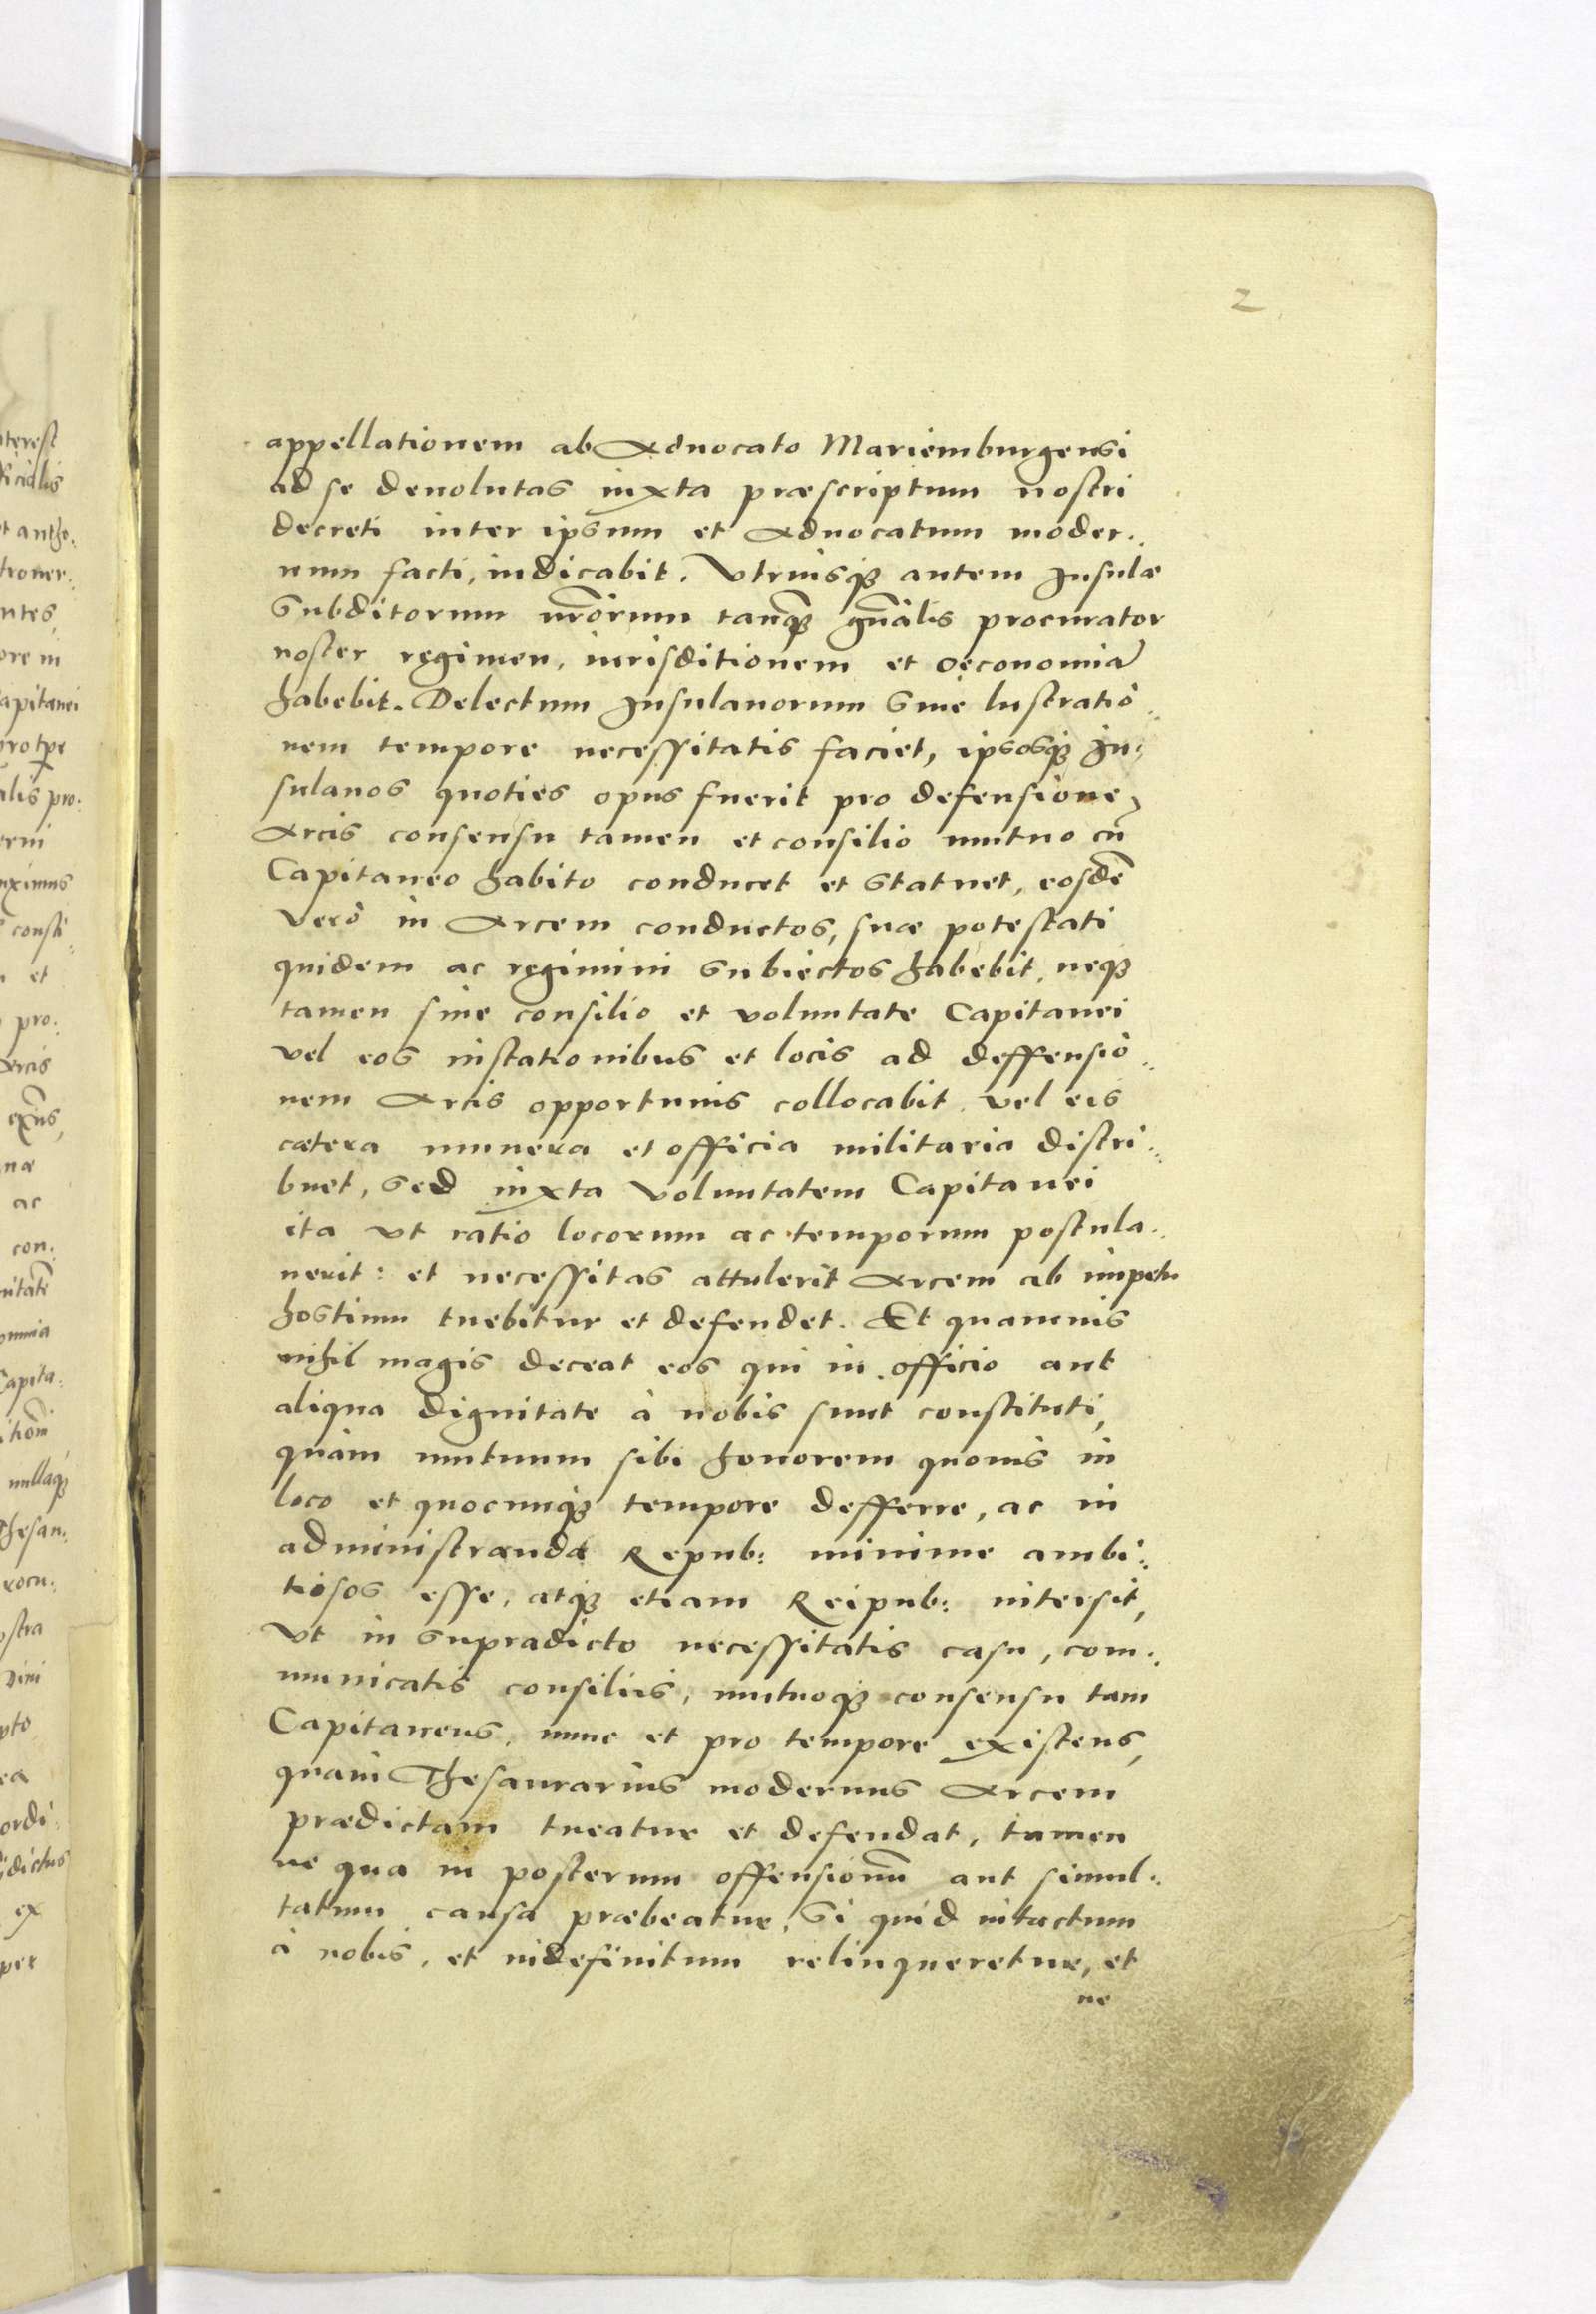 2
appellationem ab Aduocato Mariemburgensi
ad se deuolutas iuxta præscriptum nostri
decreti inter ipsum et Aduocatum moder:
num facti, iudicabit. Vtriusq₃ autem Insulæ
Subditorum nr̃orum tanq̃₃ gn̄alis procurator
noster regimen, iurisditionem et oeconomiā
habebit. Delectum Insulanorum siue lustratio:
nem tempore necessitatis faciet, ipsosq₃ In:
sulanos quoties opus fuerit pro defensione
Arcis consensu tamen et consilio mutuo cū
Capitaneo habito conducet et statuet, eosdē
Vero in Arcem conductos, suæ potestati
quidem ac regimini subiectos habebit, neq₃
tamen sine consilio et voluntate Capitanei
vel eos in stationibus et locis ad deffensio:
nem Arcis opportunis collocabit, vel eis
cætera munera et officia militaria distri:
buet, sed iuxta voluntatem Capitanei
ita vt ratio locorum ac temporum postula:
uerit: et necessitas attulerit Arcem ab impetu
hostium tuebitur et defendet. Et quamuis
nihil magis deceat eos qui in officio aut
aliqua dignitate à nobis sunt constituti,
quàm mutuum sibi honorem quouis in
loco et quocunq₃ tempore defferre, ac in
administranda Repub: minime ambi:
tiosos esse, atq₃ etiam Reipub: intersit,
Vt in supradicto necessitatis casu, com:
municatis consiliis, mutuoq₃ consensu tam
Capitaneus, nunc et pro tempore existens,
quàm Thesaurarius modernus Arcem
prædictam tueatur et defendat, tamen
ne qua in posterum offensionū aut simul:
tatum causa præbeatur, Si quid intactum
à nobis, et indefinitum relinqueretur, et
ne